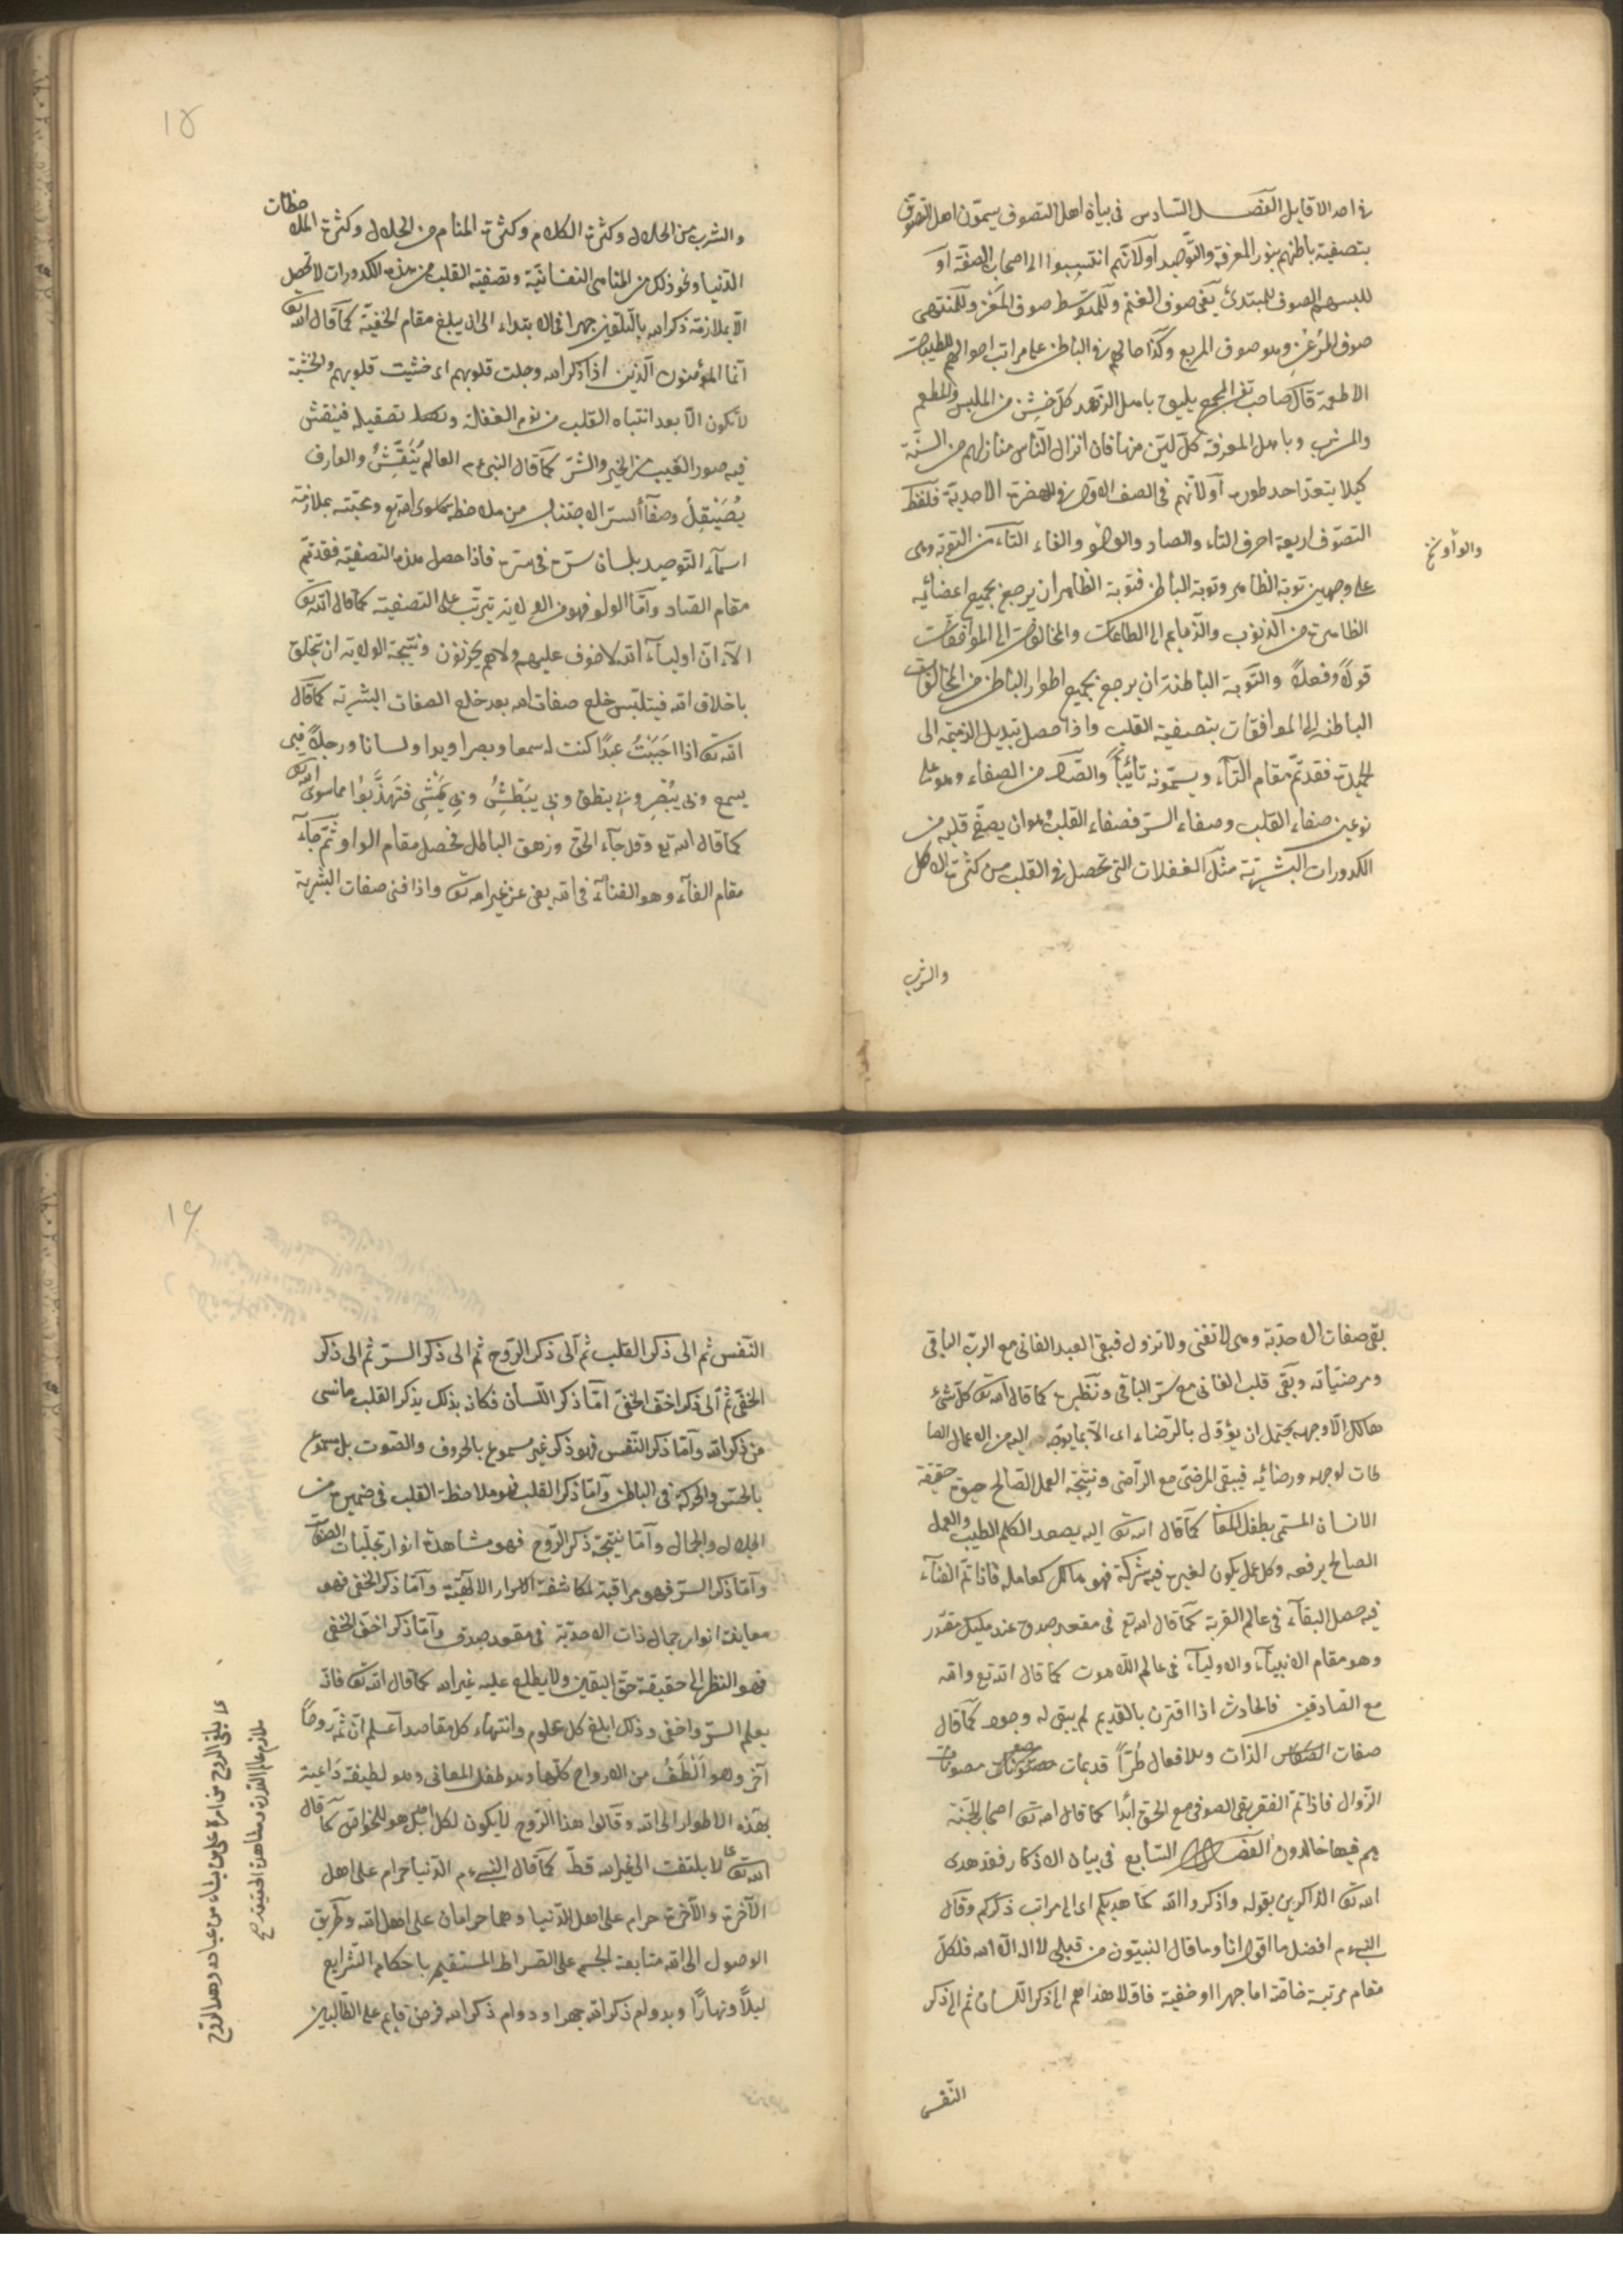 في احد الاقاويل الفصل السادس في بيان اهل التصوف سيمّون اهل التصوّف
بتصفية باطنهم بنور المعرفة والتّوحيد أو لأنّهم انتسبوا الى اصحاب الصفّة أو
للبسهم الصوف للمبتدئ يعني صوف الغنم وللمتوسّط صوف المَعْز وللمنتهى
صوف المِرْعِزّ وهو صوف المربع وكذا حالهم في الباطن على مراتب احوالهم للطيبات
الاطعمة قال صاحب تفسير المجمع يليق باهل الزّهد كلّ خشن من الملبس والمطعم
والمشرب وباهل المعرفة كلّ ليّن منها فان انزال النّاس منازلهم من السنّة
كيلا يتعدّا احد طوره أو لأنّهم في الصف الاوّل في الحضرة الاحدية فلفظ
التصوّف اربعة احرف التاء والصاد والواو والفاء التّاء من التوبة وهى
والواو نخ
على وجهين توبة الظاهر وتوبة الباطن فتوبة الظاهر ان يرجع بجميع اعضائه
الظاهرة من الذنوب والذّمايم الى الطاعات والمخالفات الى الموافقات
قولاً وفعلاً والتّوبة الباطنة ان يرجع بجميع اطوار الباطن من المخالفات
الباطنه الى الموافقات بتصفية القلب واذا حصل تبديل الذميمه الى
الحميدة فقد تمّ مقام التّاء ويسمّونه تائباً والصّاد من الصفاء وهو على
نوعين صفاء القلب وصفاء السرّ فصفاء القلب وهو ان يصفّى قلبه من
الكدورات البشريّة مثل الغفلات التى تحصل في القلب من كثرة الاكل
والشرب
١٥
والشرب من الحلال وكثرة الكلام وكثرة المنام من الحلال وكثرة الملاحظات
الدّنيا ونحو ذلك من المناهى النفسانيّة وتصفية القلب من هذه الكدورات لا تحصل
الّا بملازمة ذكر الله بالتّلقين جهرا في الابتداء الى ان يبلغ مقام الخفيّة كما قال الله تعالى
انّما المؤمنون الّذين اذا ذكر الله وجلت قلوبهم اى خشيت قلوبهم والخشية
لا تكون الّا بعد انتباه القلب من نوم الغفلة وتصقيله فينقش
فيه صور الغيب من الخير والشرّ كما قال النبى ع م العالم يُنَقِّشُ والعارف
يُصَيْقِلُ وصفاء السرّ الاجتناب من ملاحظة ما سوى الله تع ومحبّته بملازمة
اسمآء التّوحيد بلسان سرّه في سرّه فاذا حصل هذه التصفية فقد تمّ
مقام الصّاد وأمّا الواو فهو من الولاية تترتّب على التصفية كما قال الله تعالى
الآ انّ اوليآء الله لا خوف عليهم ولا هم يحزنون ونتيجة الولاية ان يتخلق
باخلاق الله فيتلبّس خلع صفات الله بعد خلع الصفات البشريّة كما قال
الله تعالى اذا احببتُ عبدًا كنت له سمعا وبصرا ويدا ولسانا ورجلاً فبى
يسمع وبى يُبْصِر وبى ينطق وبى يَبْطِشُ وبى يَمْشِى فتهذّبوا مما سوى الله تعالى
كما قال الله تع وقل جآء الحق وزهق الباطل فحصل مقام الواو ثم جآء
مقام الفآء وهو الفنآء في الله يعنى عن غير الله تعالى واذا فنى صفات البشرية
بقى صفات الاحديّة وهى لا تفنى ولا تزول فبقى العبد الفانى مع الربّ الباقى
ومرضيّاته وبقى قلب الفانى مع سرّ الباقى ونظيره كما قال الله تعالى كلّ شئ
هالك الّا وجهه يحتمل ان يؤول بالرضاء اى الّا بما يوجّه اليه من الاعمال الصا
لحات لوجهه ورضائه فيبقى المرضى مع الرّاضى ونتيجة العمل الصّالح حيوة حقيقة
الانسان المسمّى بطفل المعانى كما قال الله تعالى اليه يصعد الكلم الطيب والعمل
الصالح يرفعه وكل عمل يكون لغيره فيه شركة فهو هالك كعامله فاذا تمّ الفنآء
فيه حصل البقآء في عالم القربة كما قال الله تع في مقعد صدق عند مليك مقتدر
وهو مقام الانبيآء والاوليآء في عالم اللّاهوت كما قال الله تع والله
مع الصّادقين فالحادث اذا اقترن بالقديم لم يبق له وجود كما قال
صفات الذّات والافعال طُرّاً قديمات مصونات
الزّوال فاذا تمّ الفقر بقى الصوفى مع الحق أبدا كما قال الله تعالى اصحاب الجنّة
هم فيها خالدون الفصل السّابع في بيان الاذكار فقد هدى
الله تعالى الذاكرين بقوله واذكروا الله كما هديكم اى الى مراتب ذكركم وقال
النبى ع م افضل ما اقول انا وما قال النبيّون من قبلى لا اله الّا الله فلكلّ
مقام مرتبة خاصّة اما جهرا او خفية فاوّلا هداهم الى ذكر اللّسان ثم الى ذكر
النّفس
١٦
النّفس ثم الى ذكر القلب ثم الى ذكر الرّوح ثم الى ذكر السرّ ثم الى ذكر
الخفّى ثم الى ذكر اخفى الخفى امّا ذكر اللّسان فكانه بذلك يذكر القلب ما نسى
من ذكر الله وأمّا ذكر النّفس فهو ذكر غير مسموع بالحروف والصّوت بل مسموع
بالحسّ والحركة في الباطن وأمّا ذكر القلب فهو ملاحظة القلب في ضميره من
الجلال والجمال وأمّا نتيجة ذكر الرّوح فهو مشاهدة انوار تجلّيات الصفات
وأمّا ذكر السرّ فهو مراقبة لمكاشفة الاسرار الالهيّة وأمّا ذكر الخفى فهو
معاينة انوار جمال ذات الاحديّة في مقعد صدق وأمّا ذكر اخفى الخفى
فهو النظر الى حقيقة حقّ اليقين ولا يطلع عليه غير الله كما قال الله تعالى فانّه
يعلم السرّ واخفى وذلك ابلغ كل علوم وانتهاء كل مقاصد اعلم انّ ثمّه روحاً
آخر وهو اَلْطَفُ من الارواح كلّها وهو طفل المعانى وهو لطيفة داعية
بهذه الاطوار الى الله وقالوا هذا الرّوح لا يكون لكل احد بل هو للخواصّ كما قال
الله تعالى لا يلتفت الى غير الله قطّ كما قال النبى ع م الدّنيا حرام على اهل
الآخرة والآخرة حرام على اهل الدّنيا وهما حرامان على اهل الله وطريق
الوصول الى الله متابعة الجسم على الصّراط المستقيم باحكام الشّرايع
ليلًا ونهارًا وبدوام ذكر الله جهرا ودوام ذكر الله فرض قايم على الطّالبين
يلقى الروح من امره على من يشاء من عباده وهذا الرّوح
ملازم عالم القدرة ومشاهدة الحقيقة صح